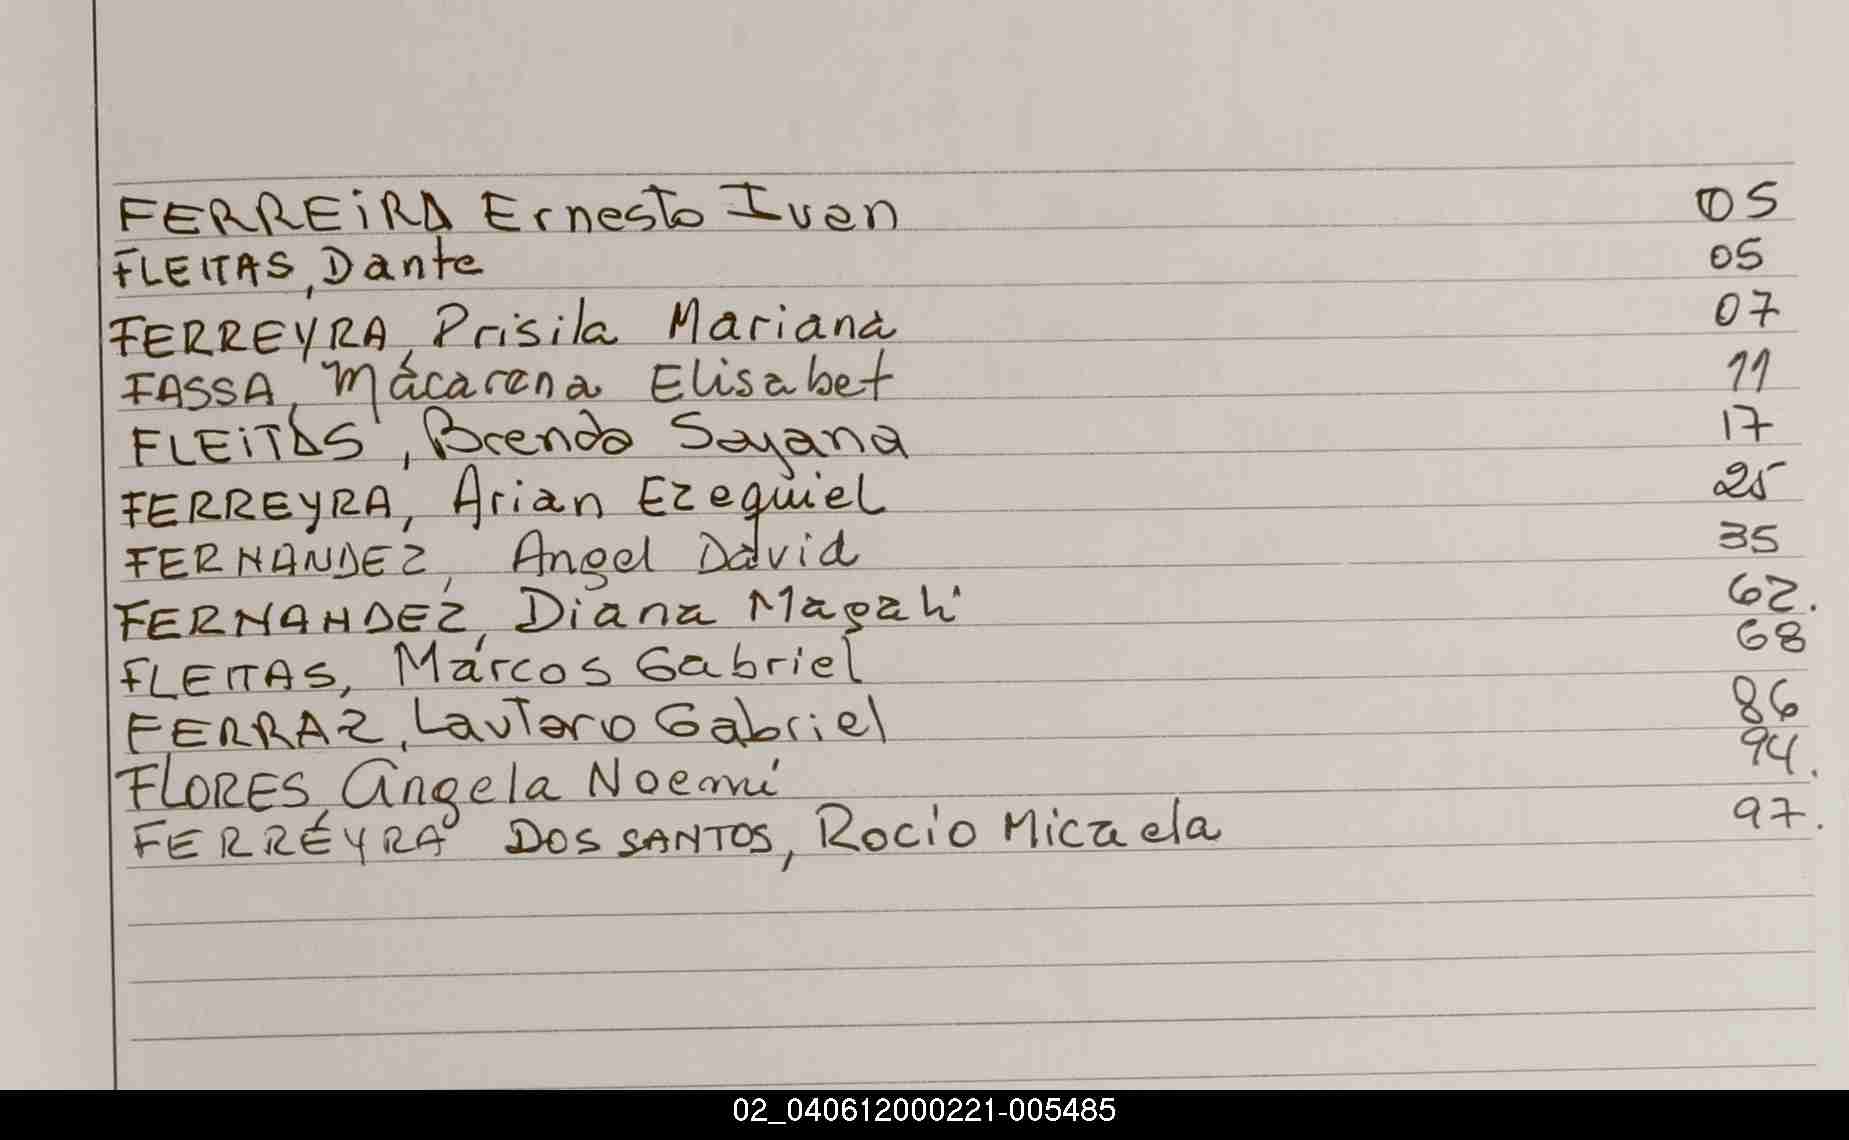 FERREiRA Ernesto Ivan 05
FLEITAS, Dante 05
FERREYRA, Prisila Mariana 07
FASSA, Macarena Elisabet 11
FLEiTAS, Brenda Sayana 17
FERREYRA, Arian Ezequiel 25
FERNANDEZ, Angel David 35
FERNANDEZ, Diana Magali 62.
FLEITAS, Marcos Gabriel 68
FERRAZ, Lautaro Gabriel 86
FLORES, Angela Noemí 94.
FERREYRA DOS SANTOS, Rocío Micaela 97.
02_040612000221-005485